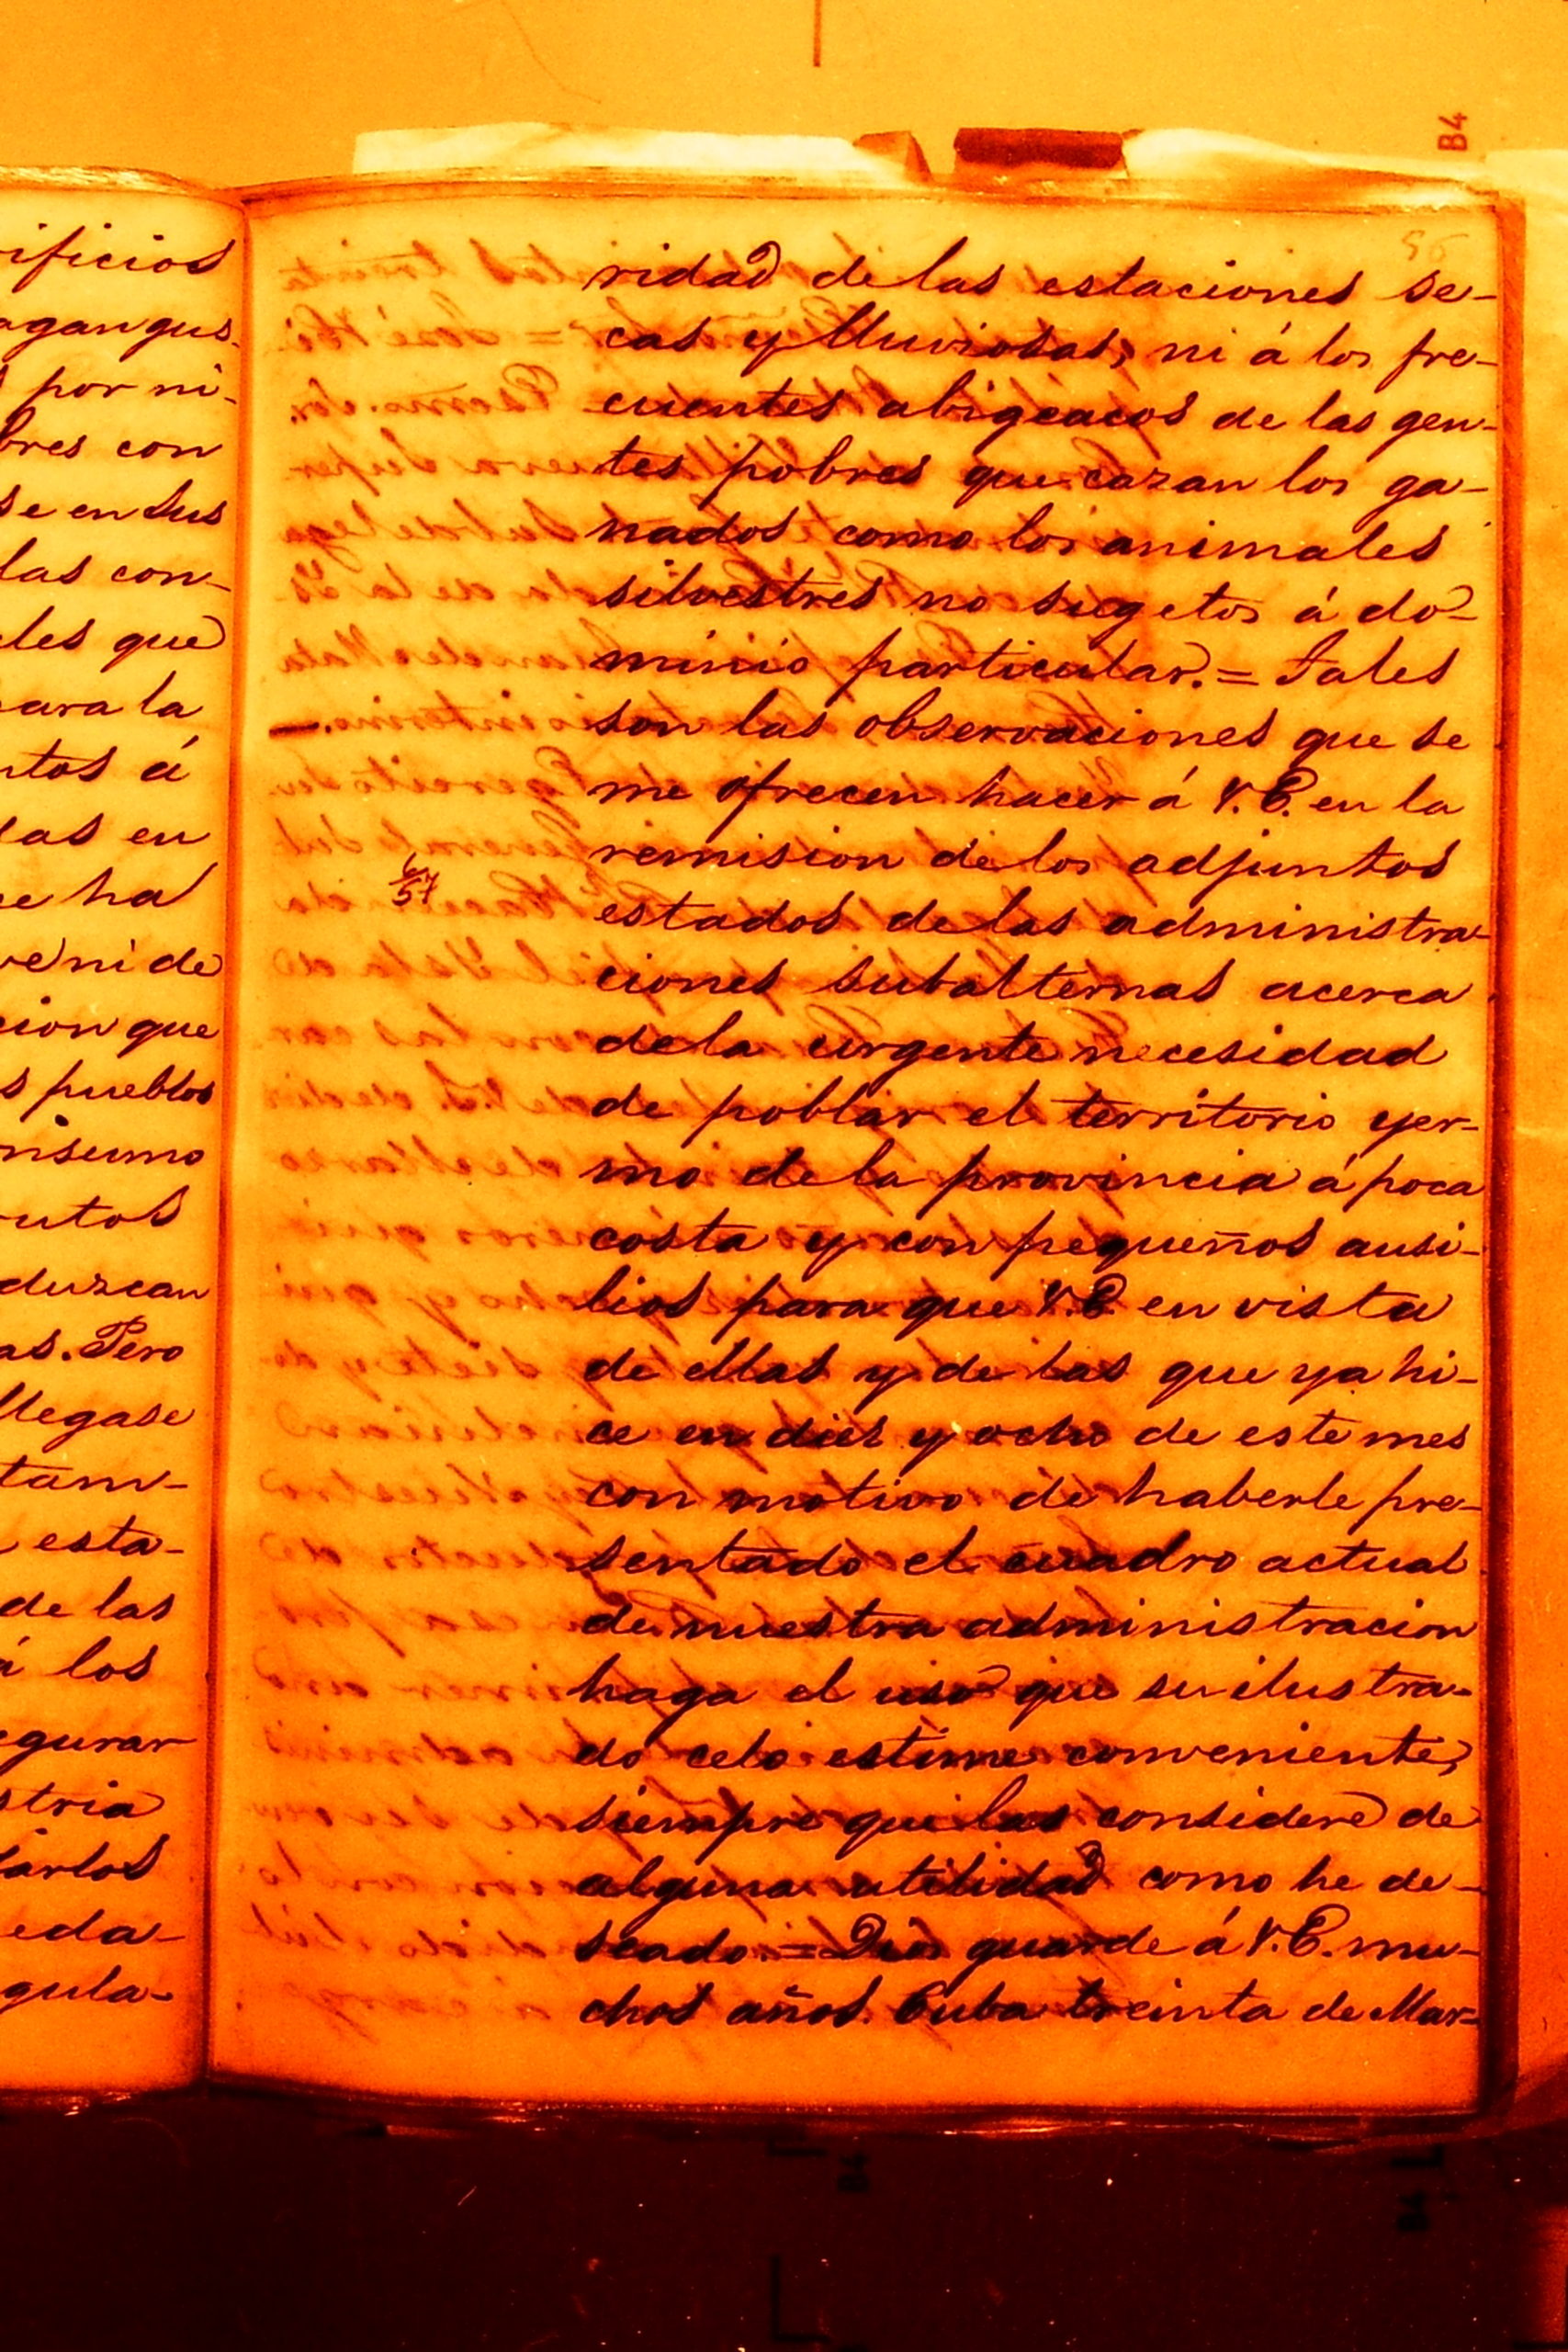 ificios
agan gus-
s por ni-
bres con
se en sus
las con-
les que
para la
ntos á
das en
e ha
ve ni de
cion que
s pueblos
nsumo
utos
duzcan
as. Pero
llegase
tam-
esta-
de las
á los
egurar
stria
Carlos
eda-
gula-
B4
56
ridad de las estaciones se-
cas y lluviosas; ni á los fre-
cuentes abigeacos de las gen-
tes pobres que cazan los ga-
nados como los animales
silvestres no sugetos á do-
minio particular. = Tales
son las observaciones que se
me ofrecen hacer á V.E. en la
remision de los adjuntos
6/57
estados de las administra-
ciones subalternas acerca
de la urgente necesidad
de poblar el territorio yer-
mo de la provincia á poca
costa y con pequeños ausi-
lios para que V.E. en vista
de ellas y de las que ya hi-
ce en diez y ocho de este mes
con motivo de haberle pre-
sentado el cuadro actual
de nuestra administracion
haga el uso que su ilustra-
do celo estime conveniente,
siempre que las considere de
alguna utilidad como he de-
seado. = Dios guarde á V.E. mu-
chos años. Cuba treinta de Mar-
B4
B4